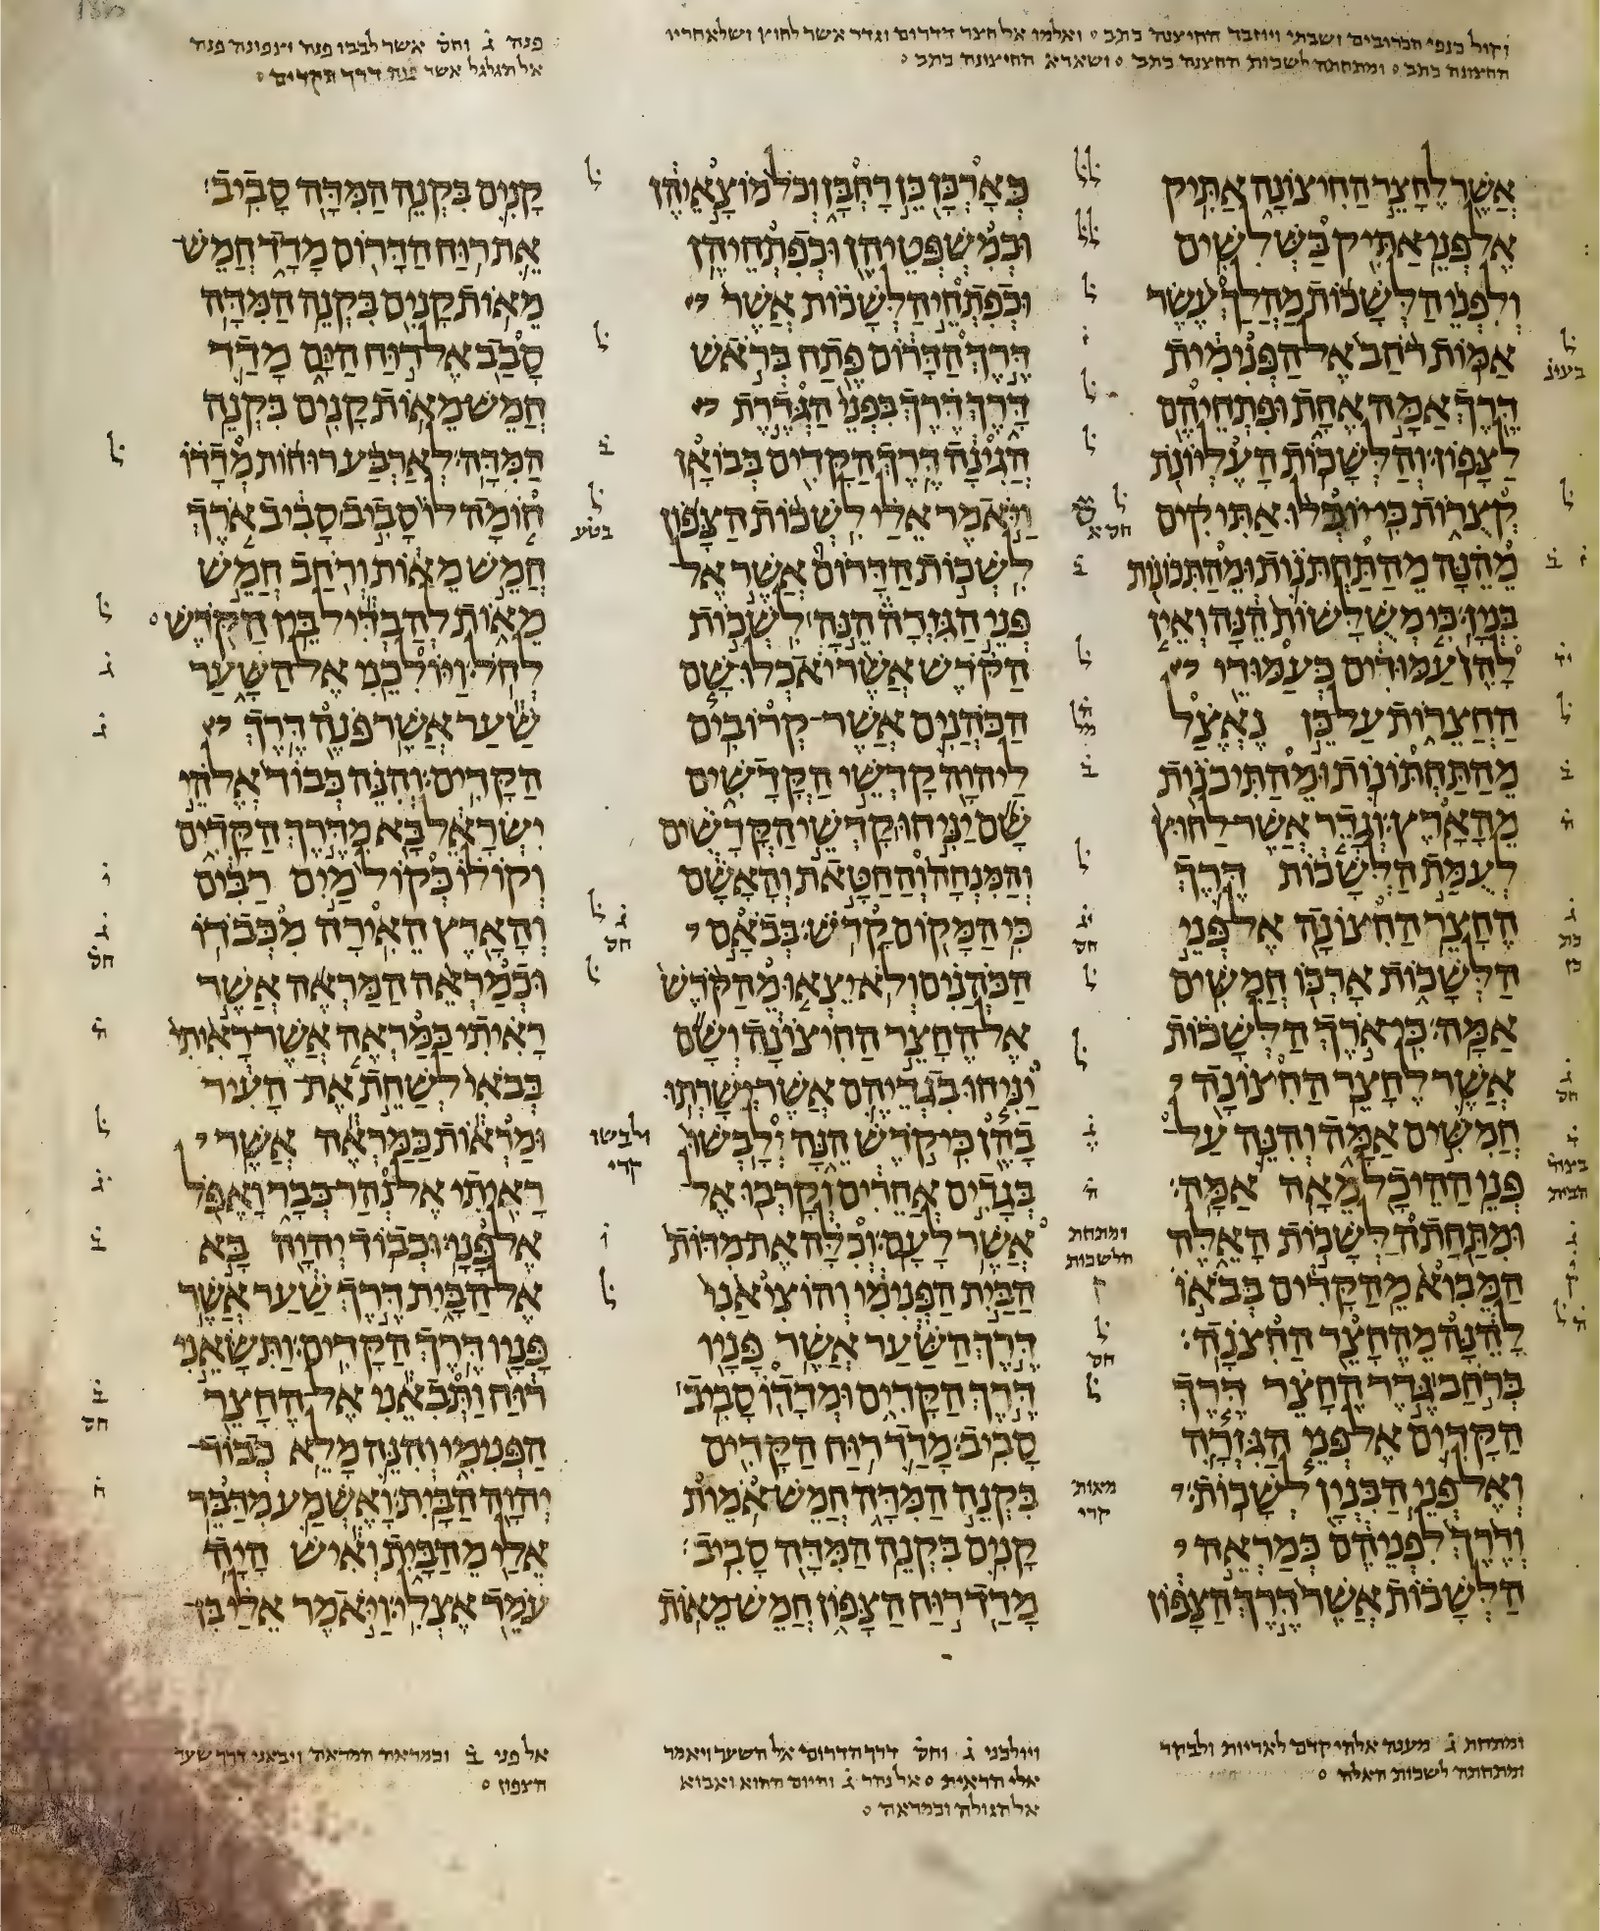 וקול כנפי הכרובים החיצנה כתב וגדר אשר לחוץ
החצונה כתב ומתחתה לשכות החצנה כתב החיצונה כתב
פנה ג וחס אשר לבבו פנה
אל הגלגל אשר פנה דרך הקדים
אשר לחצר החיצונה אתיק
אל פני אתיק בשלשים
ולפני הלשכות מהלך עשר
אמות רחב אל הפנימית
דרך אמה אחת ופתחיהם
לצפון והלשכות העליונת
קצרות כי יוכלו אתיקים
מהנה מהתחתנות ומהתכונות
בנין כי משלשות הנה ואין
להן עמודים כעמודי
החצרות על כן נאצל
מהתחתונות ומהתיכנות
מהארץ וגדר אשר לחוץ
לעמת הלשכות דרך
החצר החצונה אל פני
הלשכות ארכו חמשים
אמה כי ארך הלשכות
אשר לחצר החצונה
חמשים אמה והנה על
פני ההיכל מאה אמה
ומתחתה לשכות האלה
המבוא מהקדים בבאו
להנה מהחצר החצנה
ברחב גדר החצר דרך
הקדים אל פני הגזרה
ואל פני הבנין לשכות
ודרך לפניהם כמראה
הלשכות אשר דרך הצפון
כארכן כן רחבן וכל מוצאיהן
וכמשפטיהן וכפתחיהן
וכפתחי הלשכות אשר
דרך הדרום פתח בראש
דרך דרך בפני הגדרת
הגינה דרך הקדים בבואן
ויאמר אלי לשכות הצפון
לשכות הדרום אשר אל
פני הגזרה הנה לשכות
הקדש אשר יאכלו שם
הכהנים אשר קרובים
ליהוה קדשי הקדשים
שם יניחו קדשי הקדשים
והמנחה והחטאת והאשם
כי המקום קדש בבאם
הכהנים ולא יצאו מהקדש
אל החצר החיצונה ושם
יניחו בגדיהם אשר ישרתו
בהן כי קדש הנה ולבשו
בגדים אחרים וקרבו אל
אשר לעם וכלה את מדות
הבית הפנימי והוציאני
דרך השער אשר פניו
דרך הקדים ומדדו סביב
סביב מדד רוח הקדים
בקנה המדה חמש אמות
קנים בקנה המדה סביב
מדד רוח הצפון חמש מאות
קנים בקנה המדה סביב
את רוח הדרום מדד חמש
מאות קנים בקנה המדה
סבב אל רוח הים מדד
חמש מאות קנים בקנה
המדה לארבע רוחות מדדו
חומה לו סביב סביב ארך
חמש מאות ורחב חמש
מאות להבדיל בין הקדש
לחל ויולכני אל השער
שער אשר פנה דרך
הקדים והנה כבוד אלהי
ישראל בא מדרך הקדים
וקולו כקול מים רבים
והארץ האירה מכבדו
וכמראה המראה אשר
ראיתי כמראה אשר ראיתי
בבאי לשחת את העיר
ומראות כמראה אשר
ראיתי אל נהר כבר ואפל
אל פני וכבוד יהוה בא
אל הבית דרך שער אשר
פניו דרך הקדים ותשאני
רוח ותבאני אל החצר
הפנימי והנה מלא כבוד
יהוה הבית ואשמע מדבר
אלי מהבית ואיש היה
עמד אצלי ויאמר אלי בן
ולבשו
קרי
ומתחת
הלשכות
ק
מאות
קרי
ומתחת ג מענה אלהי קדם לאריות ולבקר
ומתחתה לשכות האלה
ויולכני ג וחס דרך הדרום אל השער ויאמר
אלי הראית אל נהר ג והיום ההוא ואבוא
אל הגולה וכמראה
אל פני ב וכמראה המראה ויבאני דרך שער
הצפון